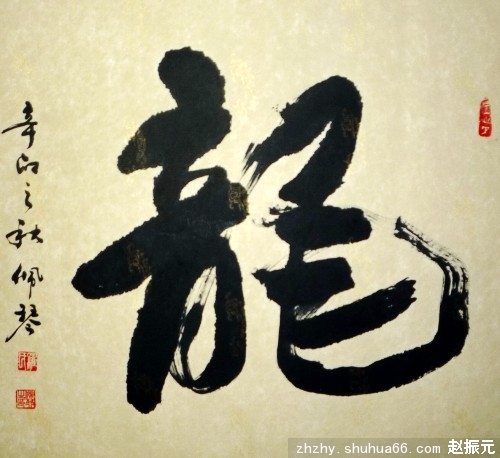 龍
辛卯之秋佩琴
zhzhy.shuhua66.com 赵振元